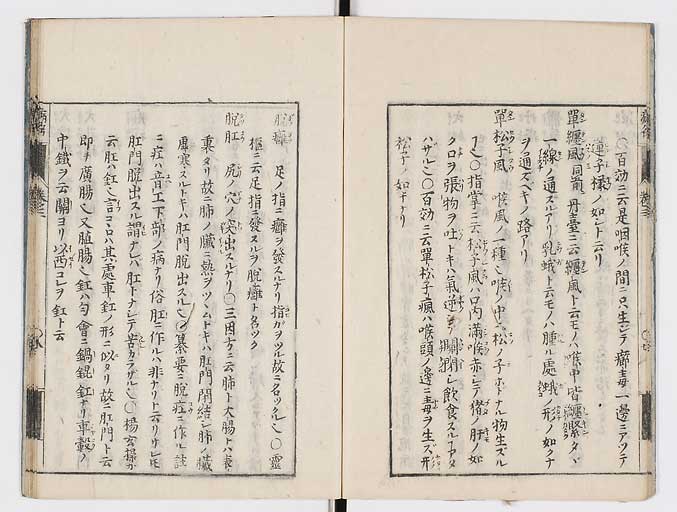 ○百効ニ云是咽喉ノ間ニ只生シテ癖毒一邊ニアツテ
蓮子樣ノ如シト云リ
單纏風 同前 丹臺ニ云纏風ト云モノハ喉中皆纏緊タヾ
一線ノ通ズルアリ乳蛾ト云モノハ腫ル處蛾ノ形ノ如クナ
ヲ通ズベキノ路アリ
單松子風 喉風ノ一種也喉ノ中ニ松ノ子ホドナル物生ズル
也○指掌ニ云松子風ハ口内滿喉赤シテ猪ノ肝ノ如
クロヲ張物ヲ吐トキハ氣逆シ關閉シ飲食スルコアタ
ハザル也○百効ニ云單松子瘋ハ喉頭ノ邊ニ毒ヲ生ズ形
松子ノ如ナリ
脱癰 足ノ指ニ癰ヲ發スルナリ指ガヲツル故ニ名ツクル也○靈
樞ニ云足指ニ發スルヲ脱癰ト名ツク
脱肛 尻ノ穴ノ突出スルナリ○三因方ニ云肺ト大腸トハ表
裏タリ故ニ肺ノ臟ニ熱ヲツヽムトキハ肛門閉結シ肺ノ臟
虚寒スルトキハ肛門脱出スル也○纂要ニ脱疘ニ作ル註
ニ疘ハ音工下部ノ病ナリ俗肛ニ作ルハ非ナリト云リサレ𪜈
肛門脱出スルノ謂ナレハ肛トナシテ苦カラザル也○楊玄操カ
云肛ハ釭也言コロハ其處車釭ノ形ニ似タリ故ニ肛門ト云
即チ廣腸也又䐁腸也釭ハ勻會ニ鍋錕釭ナリ車轂ノ
中鐵ヲ云關ヨリ以西コレヲ釭ト云